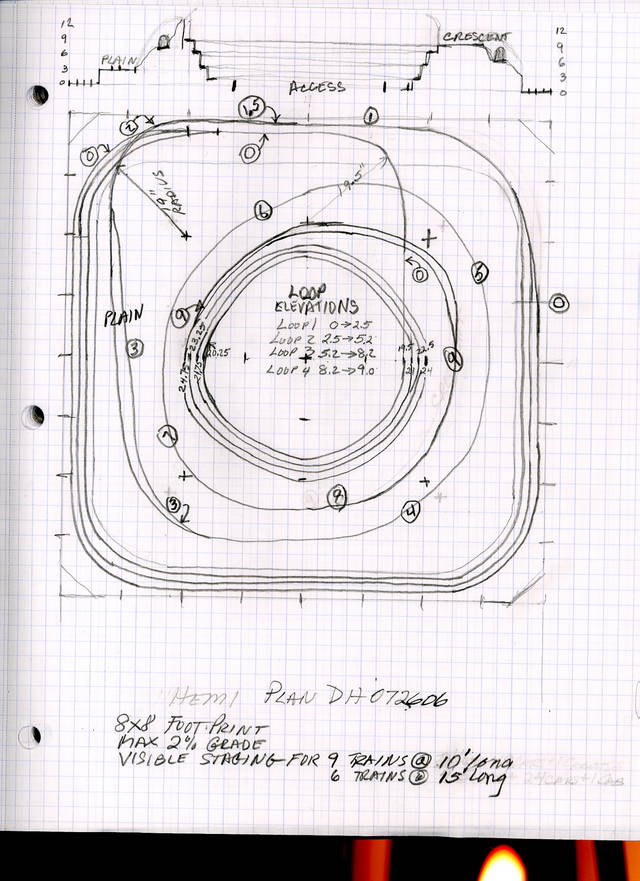 12
9
6
3
0
PLAIN
CRESCENT
12
9
6
3
0
ACCESS
1.5
1
2
0
0
19.5"
RADIUS
6
5
0
0
LOOP
ELEVATIONS
LOOP 1 0→2.5
LOOP 2 2.5→5.2
LOOP 3 5.2→8.2
LOOP 4 8.2→9.0
PLAIN
9
3
24.75
23.25
21.75
20.25
19.5
22.5
21
24
9
3
4
HEMI PLAN DH 072606
8X8 FOOT PRINT
MAX 2% GRADE
VISIBLE STAGING FOR 9 TRAINS @ 10' long
6 TRAINS @ 15' long